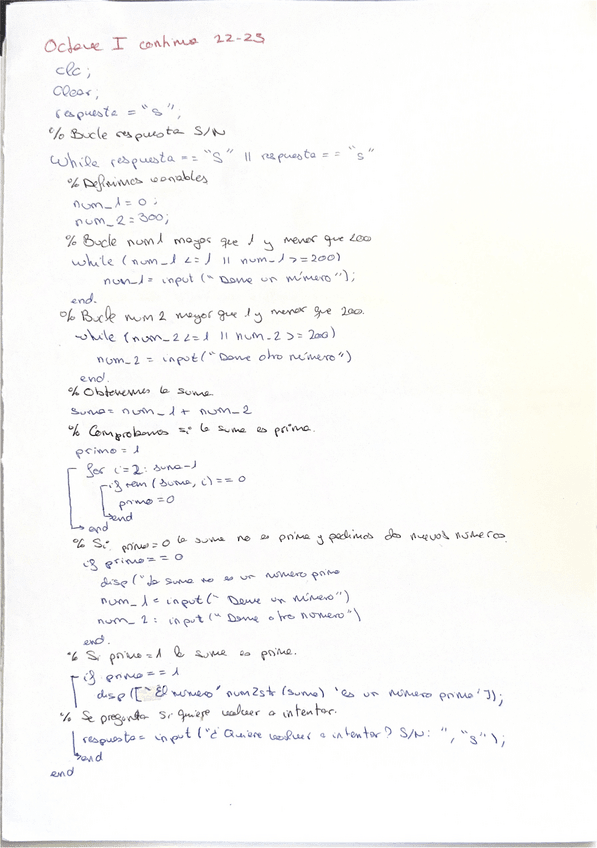 Octave I continua 22-23
clc;
Clear;
respuesta = "S";
% Bucle respuesta S/N
While respuesta == "S" || respuesta == "s"
% Definimos variables
num_1=0;
num_2=300;
% Bucle num1 mayor que 1 y menor que 200
while (num_1 <=1 || num_1>=200)
num_1= input ("Dame un número");
end.
% Bucle num 2 mayor que 1 y menor que 200.
while (num_2<=1 || num_2>=200)
num_2 = input("Dame otro número")
end.
% Obtenemos la suma
suma= num_1 + num_2
% Comprobamos si la suma es prima.
primo=1
for i=2: suma-1
if rem (suma, i)==0
primo=0
end
end
% Si primo=0 la suma no es prima y pedimos dos nuevos números.
if primo==0
disp("La suma no es un número primo
num_1= input(" Dame un número")
num_2: input("Dame otro número")
end.
% Si primo=1 la suma es prima.
if primo==1
disp(["El número' num2str (suma) 'es un número primo']);
% Se pregunta si quiere volver a intentar.
respuesta= input("¿Quiere volver a intentar? S/N: ", "s");
end
end